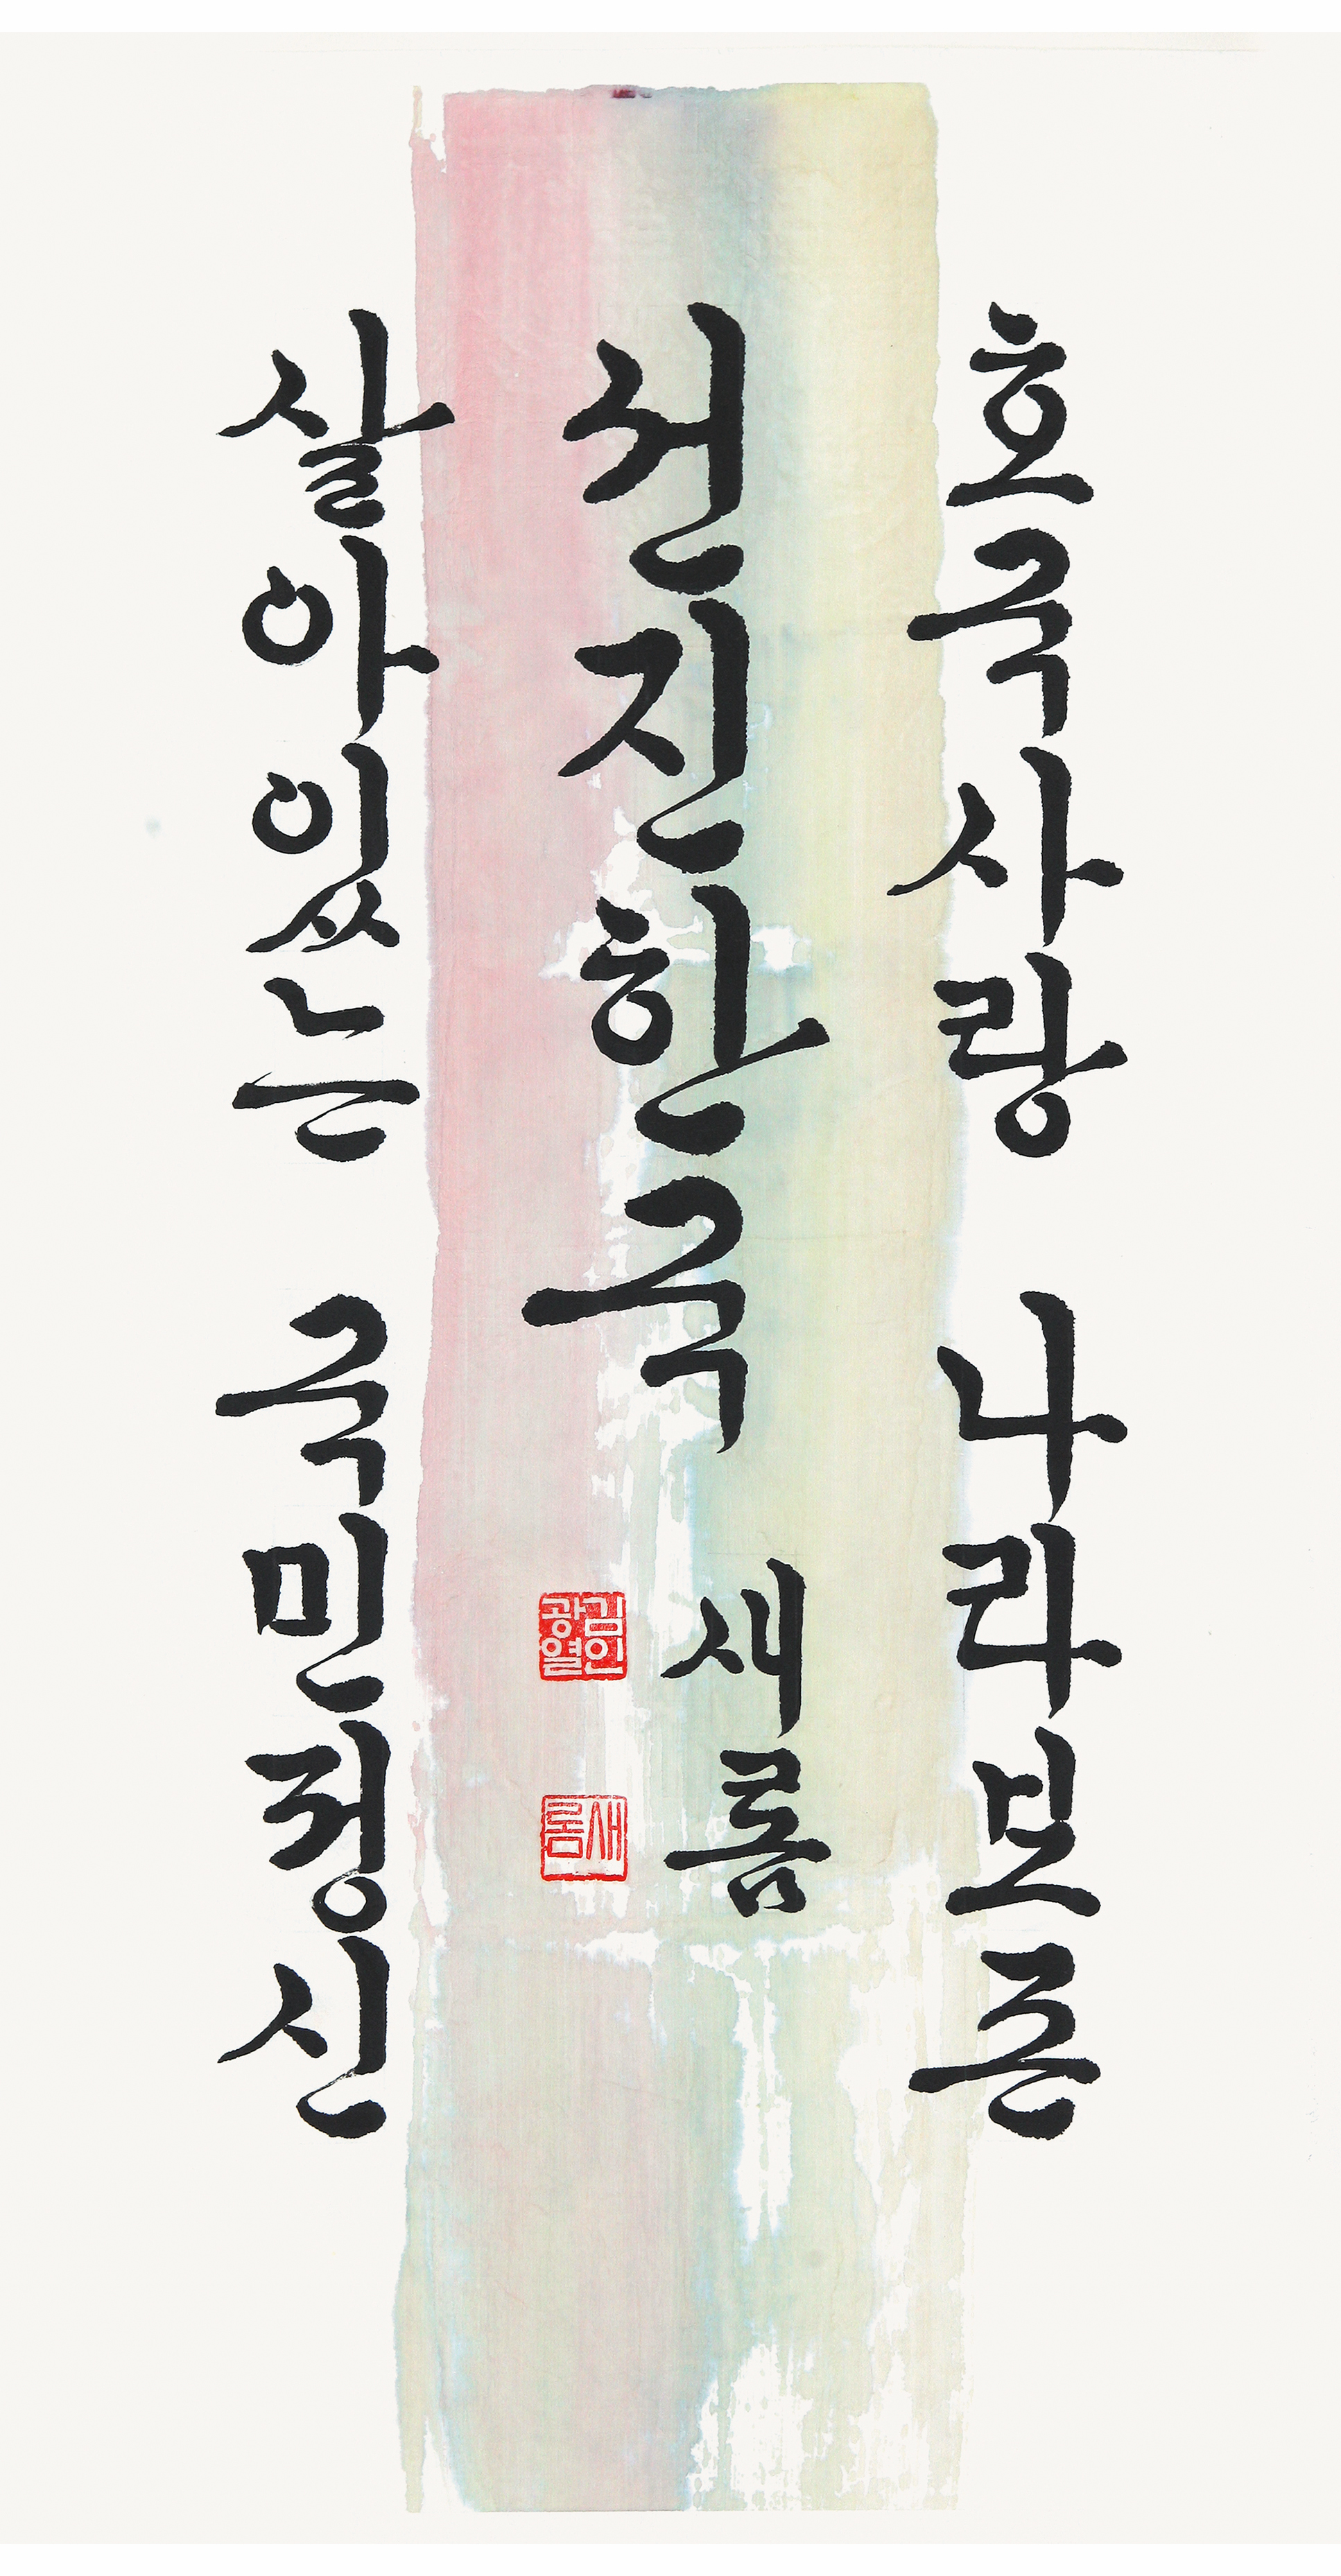 호국사랑 나라보존
선진한국
새롬
김인
광열
새롬
살아있는 국민정신